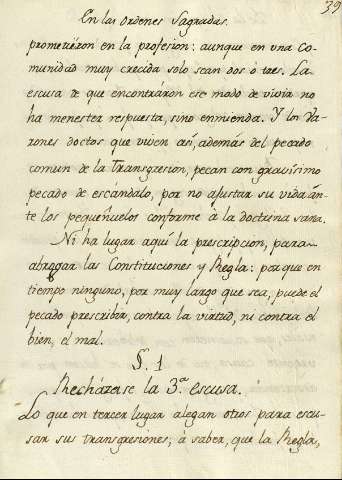 39
En las Ordenes Sagradas.
prometiéron en la profesion: aunque en una Co-
munidad muy crecida solo sean dos ó tres. La
escusa de que encontráron ese modo de vivir no
ha menester respuesta, sino enmienda. Y los Va-
rones doctos que viven así, además del pecado
comun de la Transgresion, pecan con gravisimo
pecado de escándalo, por no ajustar su vida án-
te los pequeñuelos conforme á la doctrina sana.
Ni ha lugar aquí la prescripcion, para
abrogar las Constituciones y Regla: porque en
tiempo ninguno, por muy largo que sea, puede el
pecado prescribir, contra la virtud, ni contra el
bien, el mal.
§. 1
Recházese la 3.ª escusa.
Lo que en tercer lugar alegan otros para escu-
sar sus transgresiones; á saber, que la Regla,